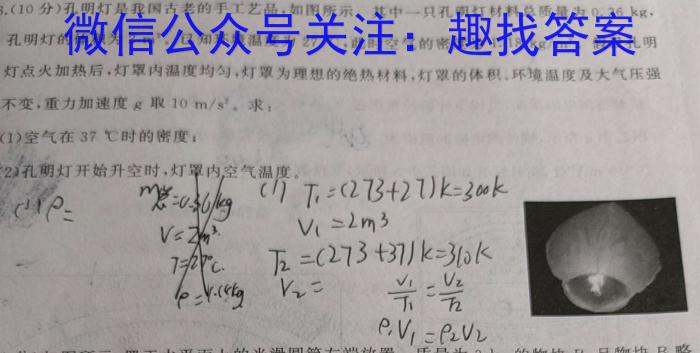 8.(10分)孔明灯是我国古老的手工艺品,如图所示,其中一只孔明灯材料总质量为0.36 kg,
微信公众号关注：趣找答案
孔明
灯点火加热后,灯罩内温度均匀,灯罩为理想的绝热材料,灯罩的体积、环境温度及大气压强
不变,重力加速度 g 取 10 m/s²。求:
(1)空气在 37 ℃时的密度;
(2)孔明灯开始升空时,灯罩内空气温度。
(1) T₁=(273+27)K=300K
V₁=2m³
T₂=(273+37)K=310K
V₂=
V₁/T₁=V₂/T₂
ρ₁V₁=ρ₂V₂
(1)ρ=
V=2m³
T=27℃